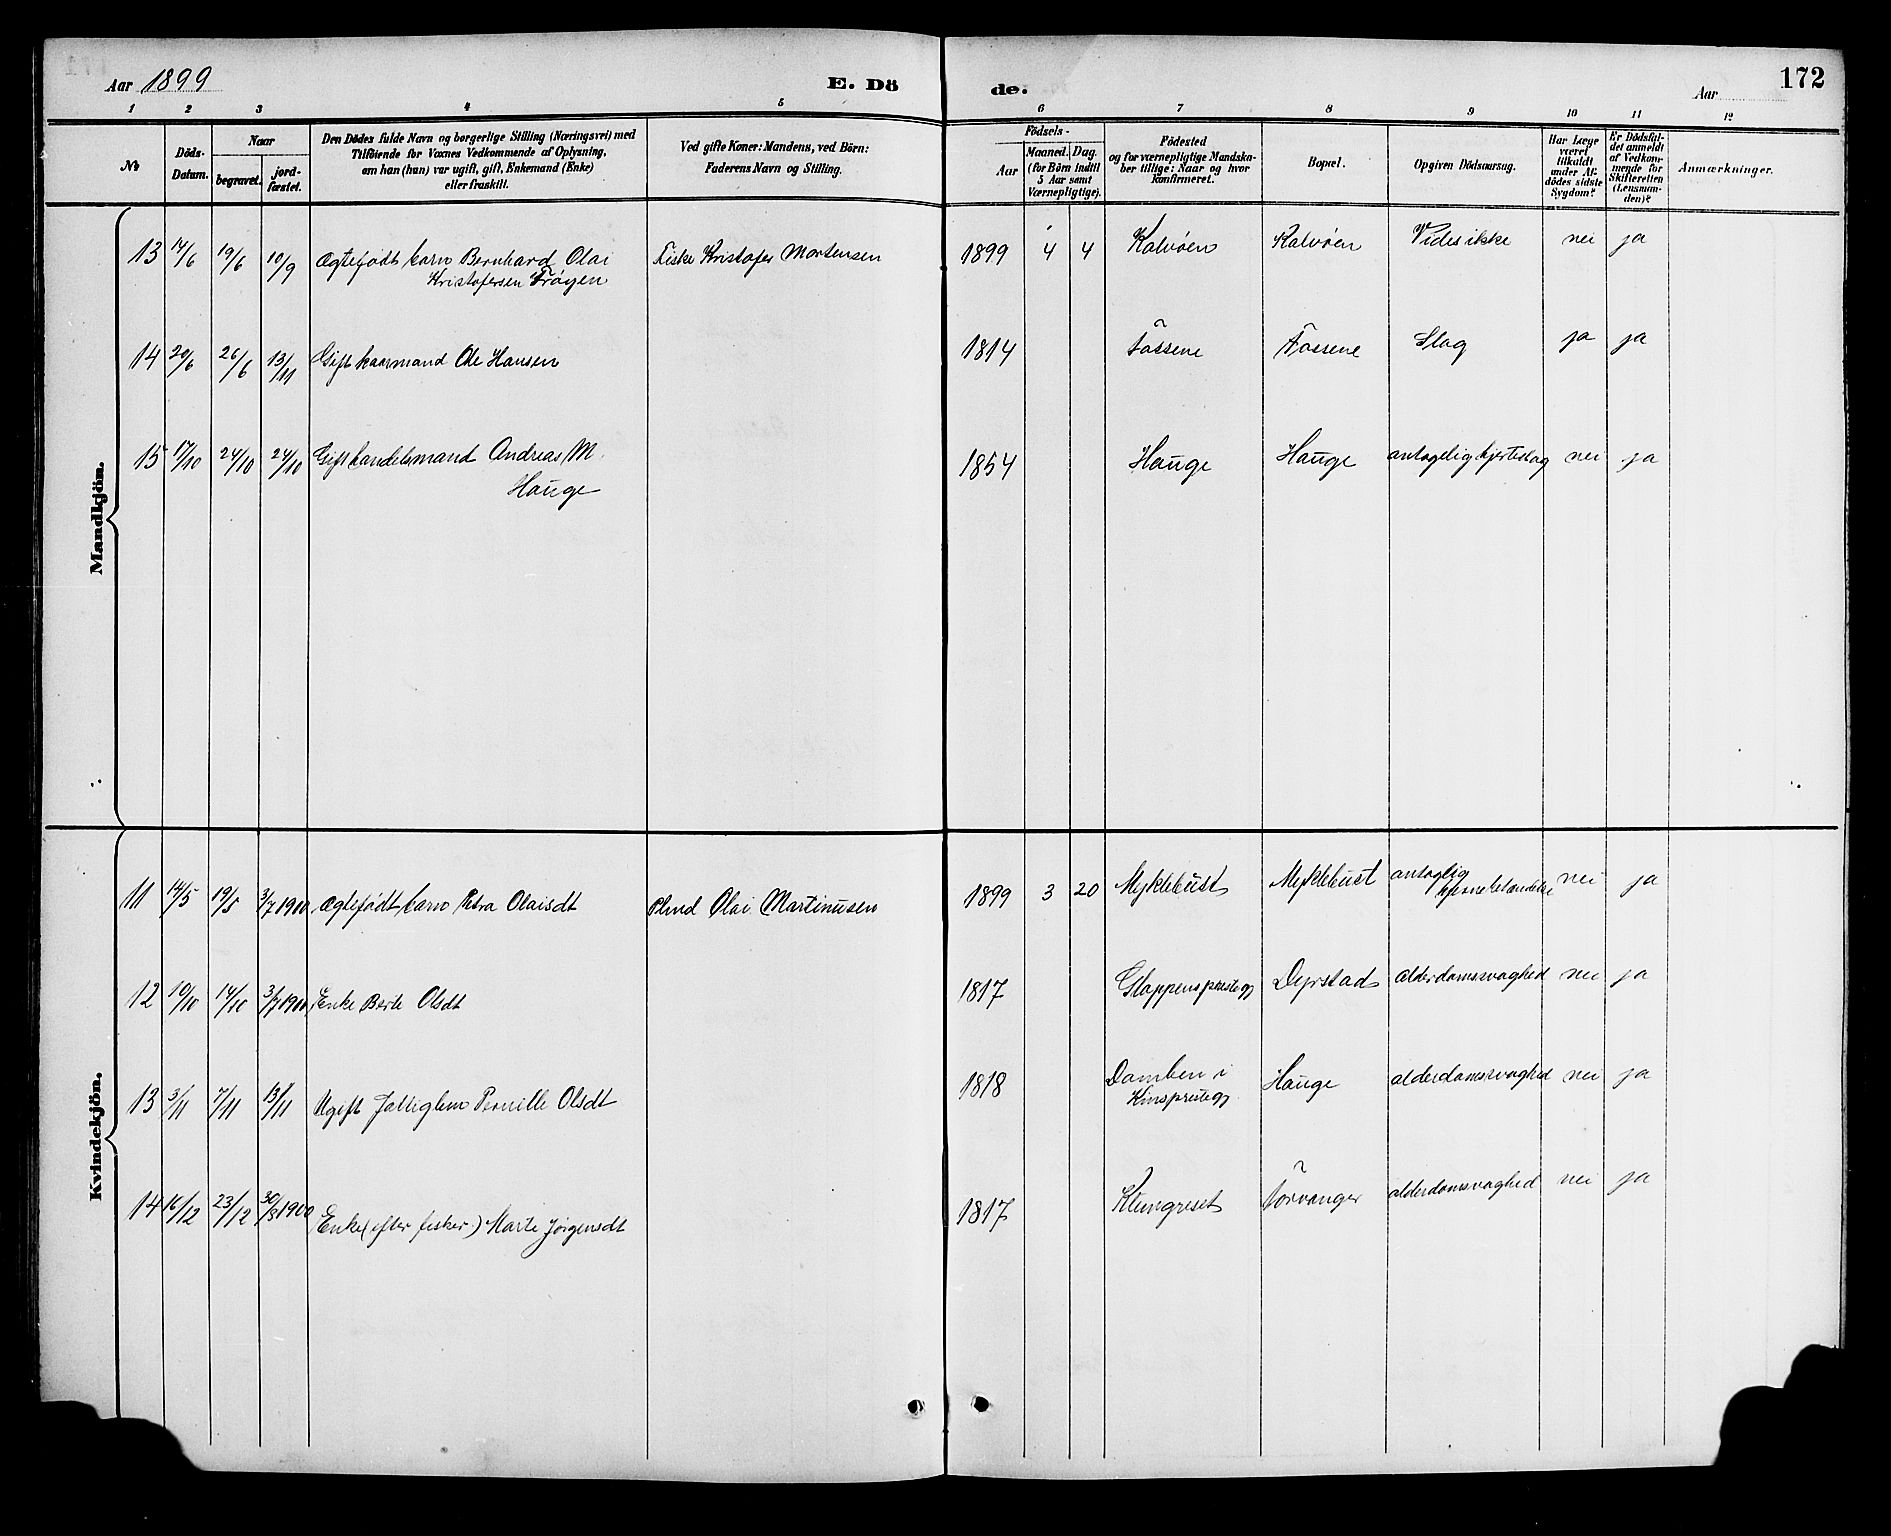 Aar 1899
E. Dö
de.
172
Aar
1 2 3 4 5 6 7 8 9 10 11 12
No
Döds-Datum.
Naar
begravet.
jord-fæstet.
Den Dödes fulde Navn og borgerlige Stilling (Næringsvei) med
Tilföiende for Voxnes Vedkommende af Oplysning,
om han (hun) var ugift, gift, Enkemand (Enke)
eller fraskilt.
Ved gifte Koner: Mandens, ved Börn:
Faderens Navn og Stilling.
Födsels-
Aar
Maaned. Dag.
(for Börn indtil
5 Aar samt
Værnepligtige).
Födested
og for værnepligtige Mandska-
ber tillige: Naar og hvor
konfirmeret.
Bopæl.
Opgiven Dödsaarsag.
Har Læge
været
tilkaldt
under Af-
dödes sidste
Sygdom?
Er Dödsfal-
det anmeldt
af Vedkom-
mende for
Skifteretten
(Lensman-
den)?
Anmærkninger.
Mandkjön.
13 14/6 19/6 10/9 Ægtefødt barn Bernhard Olai Fisker Kristofer Mortensen 1899 4 4 Kalvøen Kalvøen Vides ikke nei ja
Kristofersen Frøyen
14 20/6 26/6 13/11 Gift kaarmand Ole Hansen 1814 Fossene Fossene Slag ja ja
15 17/10 24/10 24/10 Gift handelsmand Andreas M. 1854 Hauge Hauge antagelig hjerteslag nei ja
Hauge
Kvindekjön.
11 14/5 19/5 3/7 1900 Ægtefødt barn Petra Olaisdt Plmd Olai Martinusen 1899 3 20 Myklebust Myklebust antaglig nei ja
12 10/10 14/10 3/7 1900 Enke Berte Olsdt 1817 Gloppens prestegj Dyrstad alderdomssvaghed nei ja
13 3/11 7/11 13/11 Ugift fattiglem Pernille Olsdt 1818 Domben i Hauge alderdomssvaghed nei ja
Kinsprestegj
14 16/12 23/12 30/3 1900 Enke (efter fisker) Marte Jørgensdt 1817 Klungreset Torvanger alderdomsvaghed nei ja